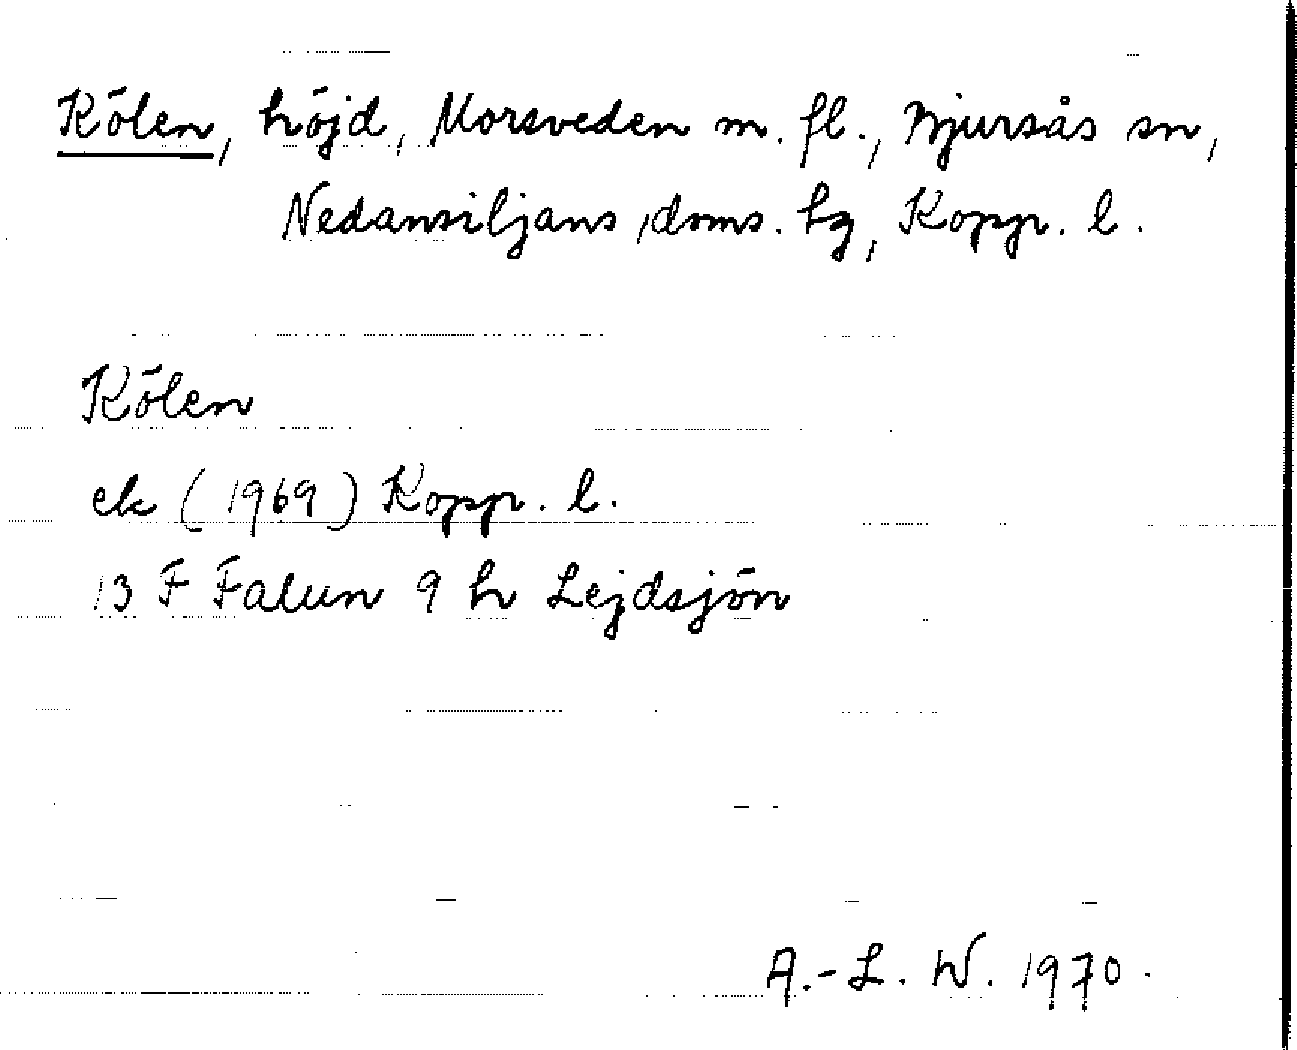 Kölen, höjd, Morsveden m. fl., Bjursås sn,
Nedansiljans doms. hg, Kopp. l.
Kölen
ek (1969) Kopp. l.
13 F Falun 9 h Lejdsjön
A.-L. W. 1970.